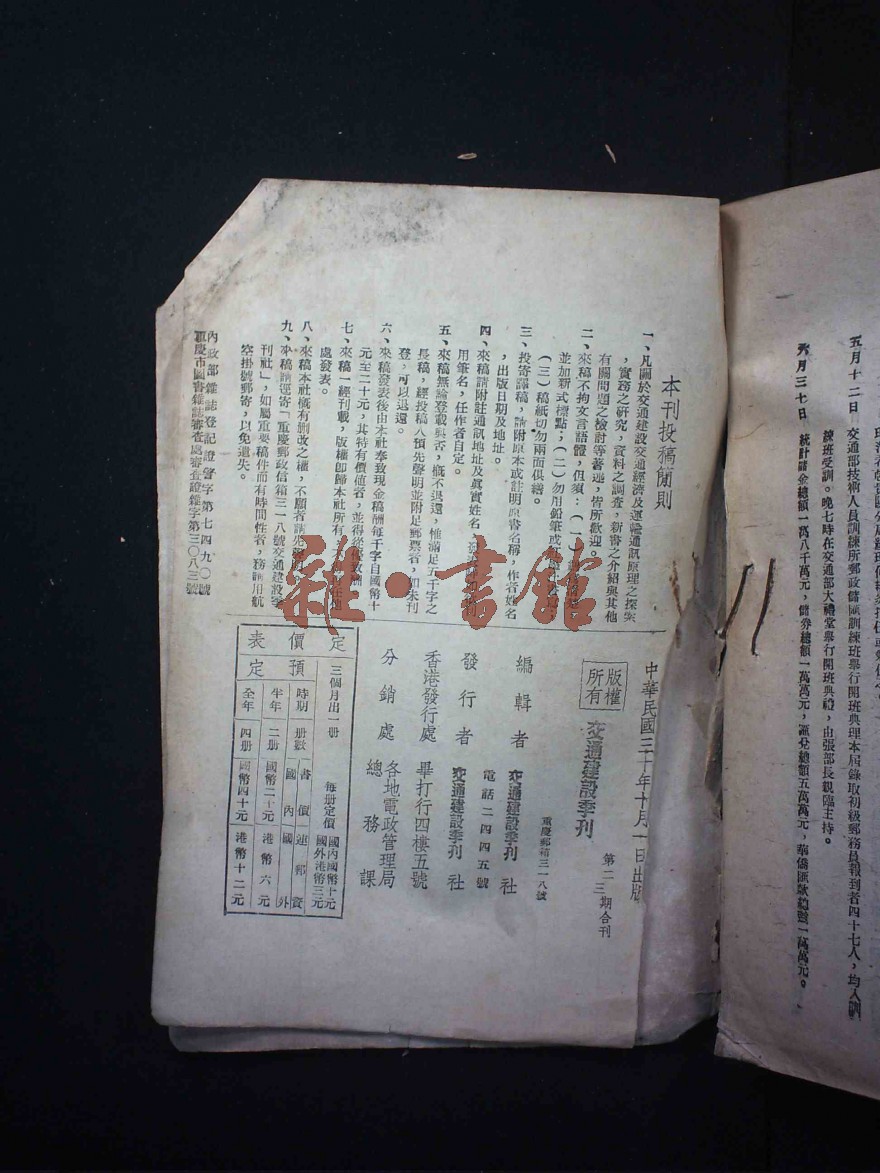 五月十二日　交通部技術人員訓練所郵政儲匯訓練班舉行開班典理本屆錄取初級郵務員報到者四十七人，均入訓
練班受訓。晚七時在交通部大禮堂舉行開班典禮，由張部長親臨主持。
六月三十日　統計儲金總額一萬八千萬元，儲券總額一萬萬元，匯兌總額五萬萬元，華僑匯款總額一萬萬元。
本刊投稿簡則
一、凡關於交通建設交通經濟及運輸通訊原理之探突
，實務之研究，資料之調査，新書之介紹與其他
有關問題之檢討等著述，皆所歡迎。
二、來稿不拘文言語體，但須：（一）
並加新式標點；（二）勿用鉛筆或
（三）稿紙切勿兩面俱繕。
三、投寄譯稿，請附原本或註明原書名稱，作者姓名
，出版日期及地址。
四、來稿請附註通訊地址及眞實姓名，
用筆名，任作者自定。
五、來稿無論登載與否，槪不退還，惟滿足五千字之
長稿，經投稿人預先聲明並附足郵票者，如未刊
登，可以退還。
六、來稿發表後由本社奉致現金稿酬每千字自國幣十
元至二十元，其特有價値者，並得從優致酬
七、來稿一經刊載，版權卽歸本社所有，
處發表。
八、來稿本社槪有删改之權，不願者請先
九、來稿請逕寄「重慶郵政信箱三一八號交通建設季
刊社」，如屬重要稿件而有時間性者，務請用航
空掛號郵寄，以免遺失。
內政部雜誌登記證警字第七四九〇號
重慶市圖書雜誌審査處審査證雜字第三〇八三號
中華民國三十年十月一日出版
版權所有
交通建設季刊
第二三期合刊
重慶郵箱三一八號
編輯者　交通建設季刊社
電話二四四五號
發行者　交通建設季刊社
香港發行處　畢打行四樓五號
分銷處　各地電政管理局
總務課
定價表
三個月出一册　每册定價　國內國幣十元　國外港幣三元
預定
時期　册數　書價連郵資　國內　國外
半年　二册　國幣二十元　港幣六元
全年　四册　國幣四十元　港幣十二元
雜·書館